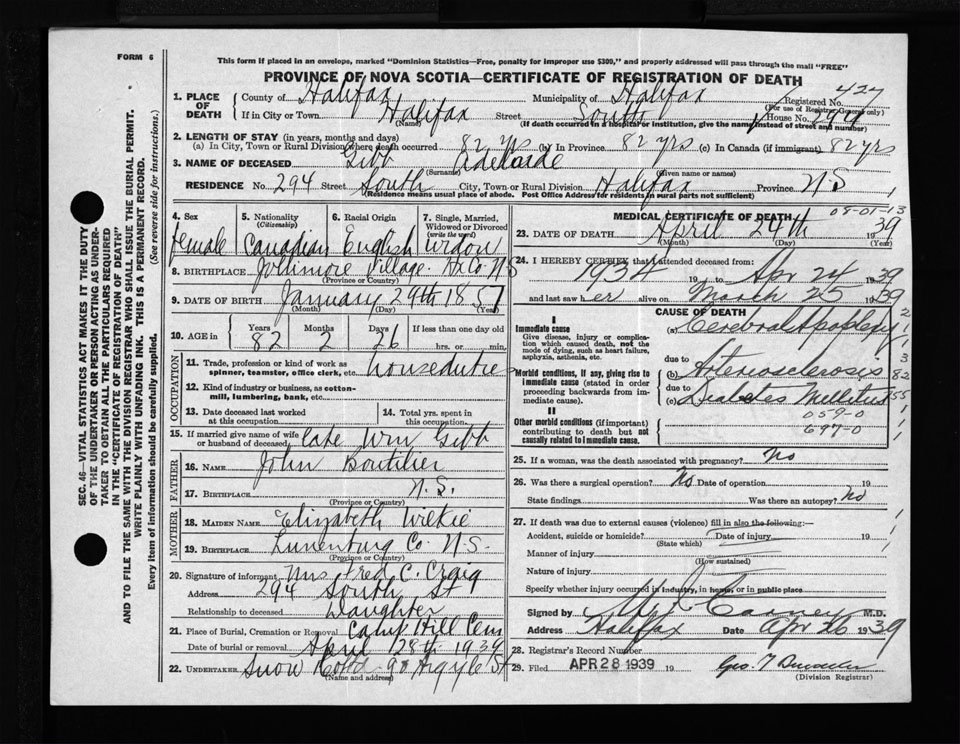 FORM 6
This form if placed in an envelope, marked "Dominion Statistics—Free, penalty for improper use $300," and properly addressed will pass through the mail "FREE"
PROVINCE OF NOVA SCOTIA—CERTIFICATE OF REGISTRATION OF DEATH
1. PLACE OF DEATH County of Halifax Municipality of Halifax Registered No. 427
(For use of Registrar General only)
If in City or Town. Halifax Street South House No. 294
(Name) (If death occurred in a hospital or institution, give the name instead of street and number)
2. LENGTH OF STAY (in years, months and days)
(a) In City, Town or Rural Division where death occurred 82 yrs (b) In Province 82 yrs (c) In Canada (if immigrant) 82 yrs
3. NAME OF DECEASED Gibb Adelaide
(Surname) (Given name or names)
RESIDENCE No. 294 Street South City, Town or Rural Division Halifax Province N S
(Residence means usual place of abode. Post Office Address for residents in rural parts not sufficient)
4. Sex female
5. Nationality (Citizenship) Canadian
6. Racial Origin English
7. Single, Married, Widowed or Divorced (write the word) Widow
8. BIRTHPLACE Jollimore Village Hx Co. N S
(Province or Country)
9. DATE OF BIRTH January 29th 1857
(Month) (Day) (Year)
10. AGE in Years 82 Months 2 Days 26 If less than one day old
hrs. or min.
OCCUPATION
11. Trade, profession or kind of work as spinner, teamster, office clerk, etc. houseduties
12. Kind of industry or business, as cotton-mill, lumbering, bank, etc.
13. Date deceased last worked at this occupation
14. Total yrs. spent in this occupation.
15. If married give name of wife or husband of deceased late Wm Gibb
FATHER
16. NAME John Boutilier
17. BIRTHPLACE N.S.
(Province or Country)
MOTHER
18. MAIDEN NAME Elizabeth Wilkie
19. BIRTHPLACE Lunenburg Co N.S.
(Province or Country)
20. Signature of informant Mrs Fred C. Craig
Address 294 South St
Relationship to deceased Daughter
21. Place of Burial, Cremation or Removal Camp Hill Cem
Date of burial or removal April 28th 1939
22. UNDERTAKER Snow 90 Argyle St
(Name and address)
MEDICAL CERTIFICATE OF DEATH
08-01-13
23. DATE OF DEATH April 24th 1939
(Month) (Day) (Year)
24. I HEREBY CERTIFY that I attended deceased from:
1934 19 to Apr 24 1939
and last saw her alive on March 25 1939
CAUSE OF DEATH
I
Immediate cause
Give disease, injury or complication which caused death, not the mode of dying, such as heart failure, asphyxia, asthenia, etc.
(a) Cerebral Apoplexy
due to
Morbid conditions, if any, giving rise to immediate cause (stated in order proceeding backwards from immediate cause).
(b) Arteriosclerosis
due to
(c) Diabetes Mellitus
II
Other morbid conditions (if important) contributing to death but not causally related to immediate cause.
059-0
697-0
2
1
1
3
82
55
25. If a woman, was the death associated with pregnancy? No
26. Was there a surgical operation? No Date of operation 19
State findings Was there an autopsy? No
27. If death was due to external causes (violence) fill in also the following:—
Accident, suicide or homicide? Date of injury 19
(State which)
Manner of injury
(How sustained)
Nature of injury
Specify whether injury occurred in industry, in home, or in public place
Signed by Cooney M.D.
Address Halifax Date Apr 26 1939
28. Registrar's Record Number
29. Filed APR 28 1939 19
(Division Registrar)
SEC. 46—VITAL STATISTICS ACT MAKES IT THE DUTY
OF THE UNDERTAKER OR PERSON ACTING AS UNDER-
TAKER TO OBTAIN ALL THE PARTICULARS REQUIRED
IN THE "CERTIFICATE OF REGISTRATION OF DEATH"
AND TO FILE THE SAME WITH THE DIVISION REGISTRAR WHO SHALL ISSUE THE BURIAL PERMIT.
WRITE PLAINLY WITH UNFADING INK. THIS IS A PERMANENT RECORD.
Every item of information should be carefully supplied. (See reverse side for instructions.)